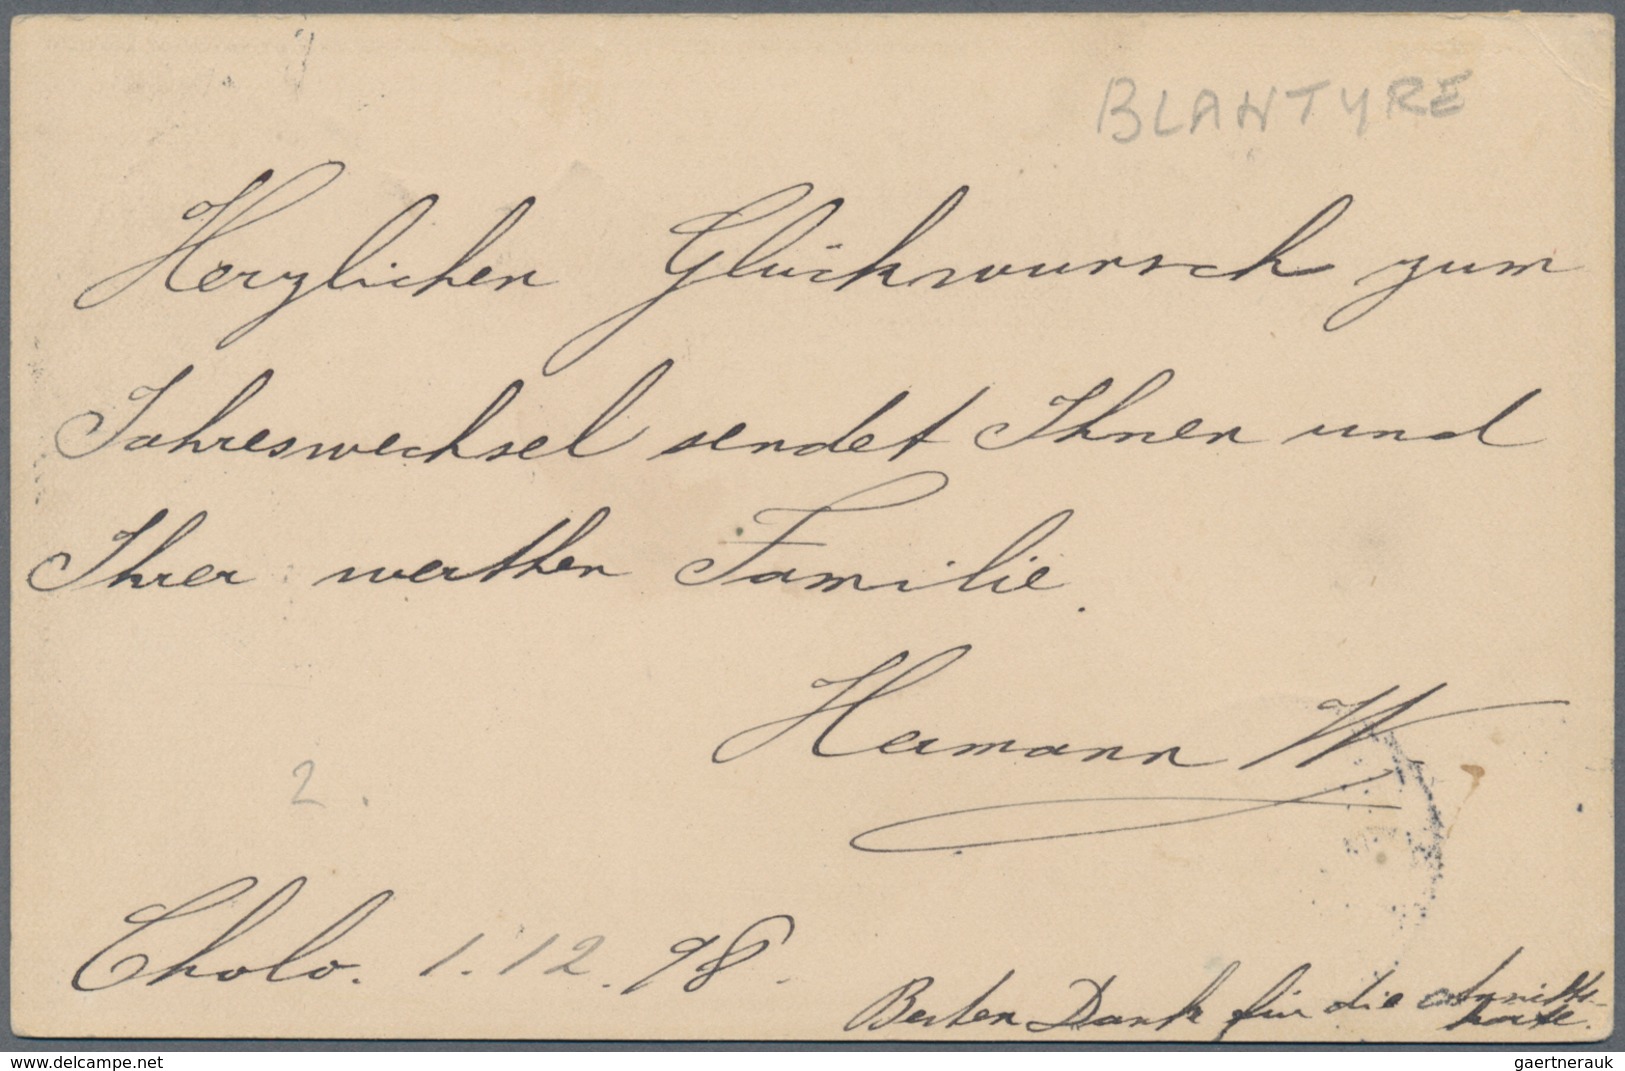 BLANTYRE
Herzlichen Glückwunsch zum
Jahreswechsel sendet Ihnen und
Ihrer werthen Familie.
Hermann W
2.
Cholo. 1.12.98.
Besten Dank für die Ansichts-
karte.
gaertnerauk @ delcampe.net